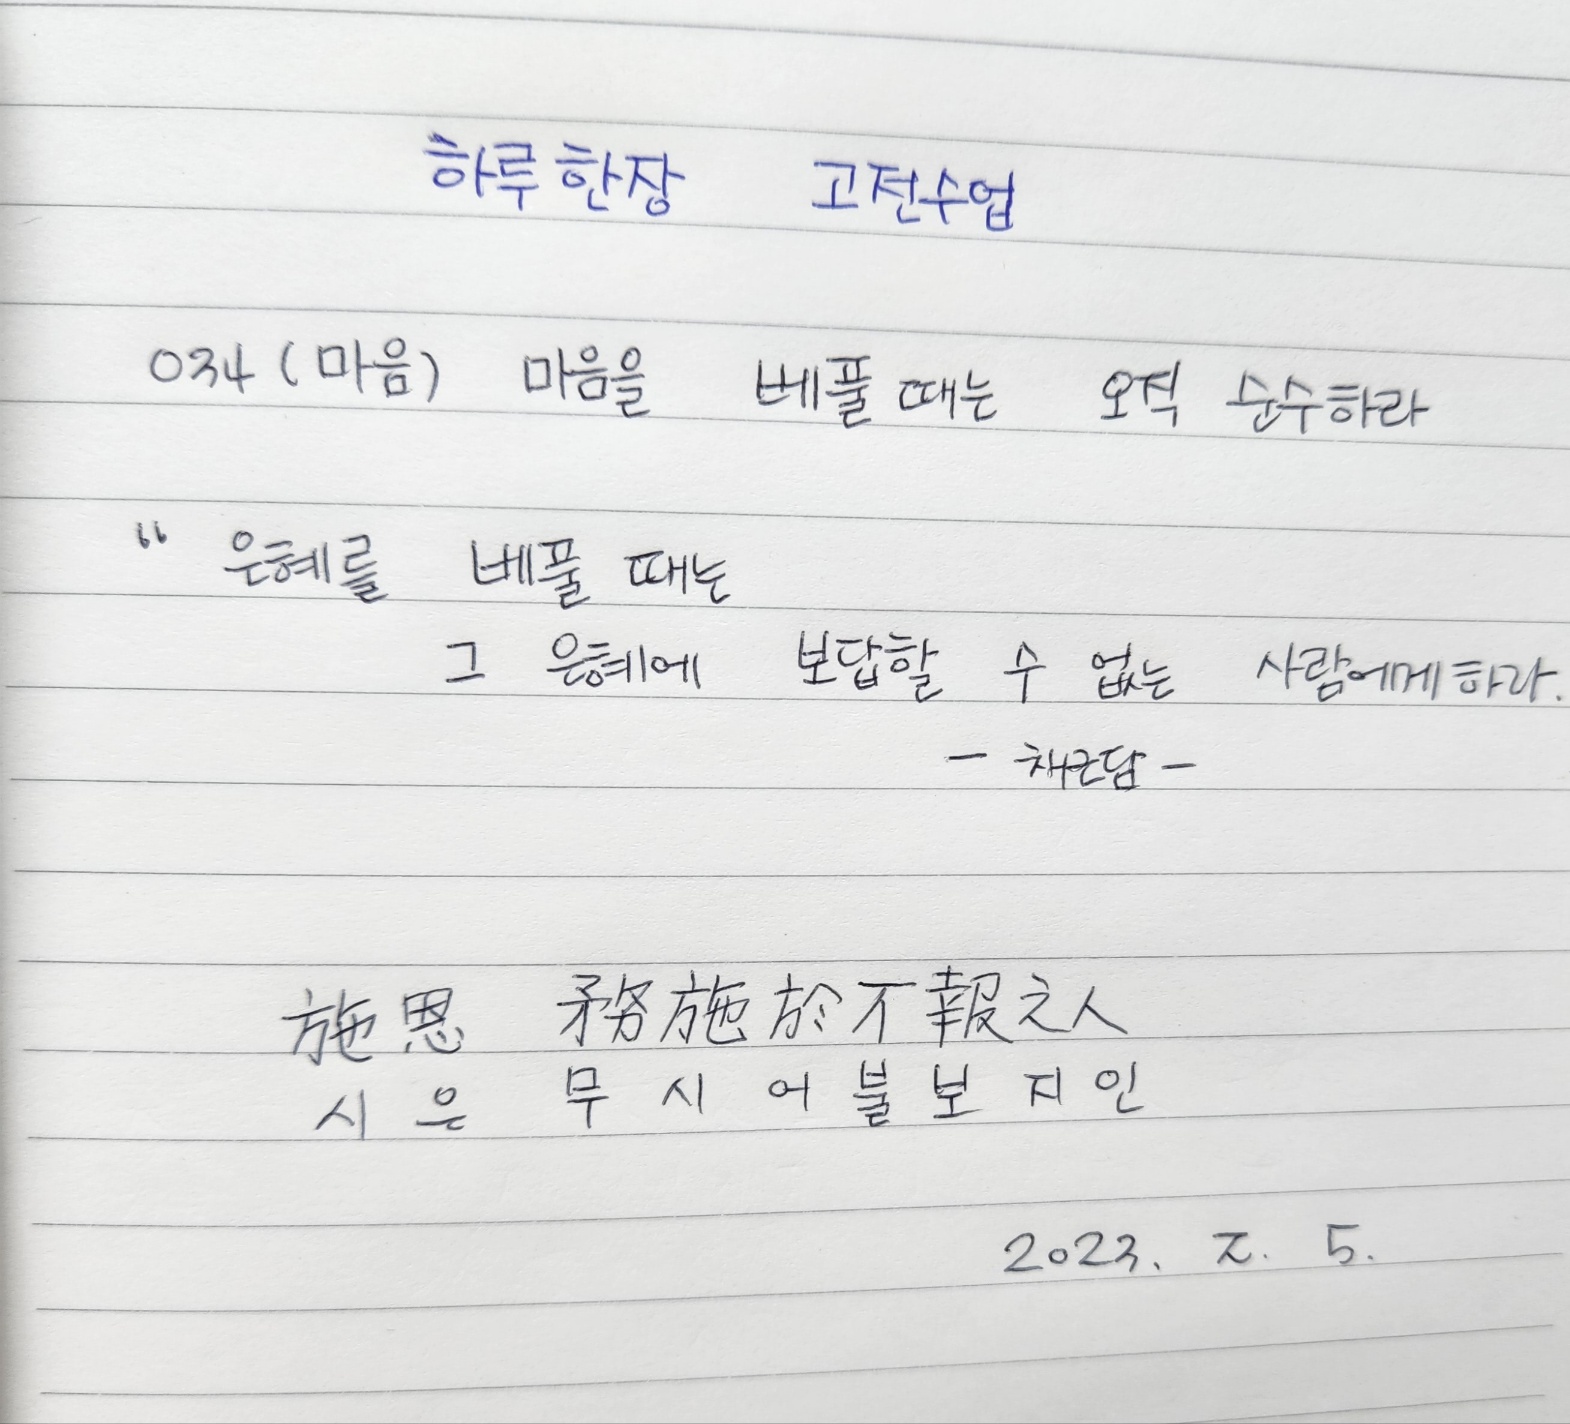 하루 한장 고전수업
034 (마음) 마음을 베풀 때는 오직 순수하라
“ 은혜를 베풀 때는
그 은혜에 보답할 수 없는 사람에게 하라.
- 채근담 -
施恩 務施於不報之人
시은 무시어불보지인
2023. 7. 5.